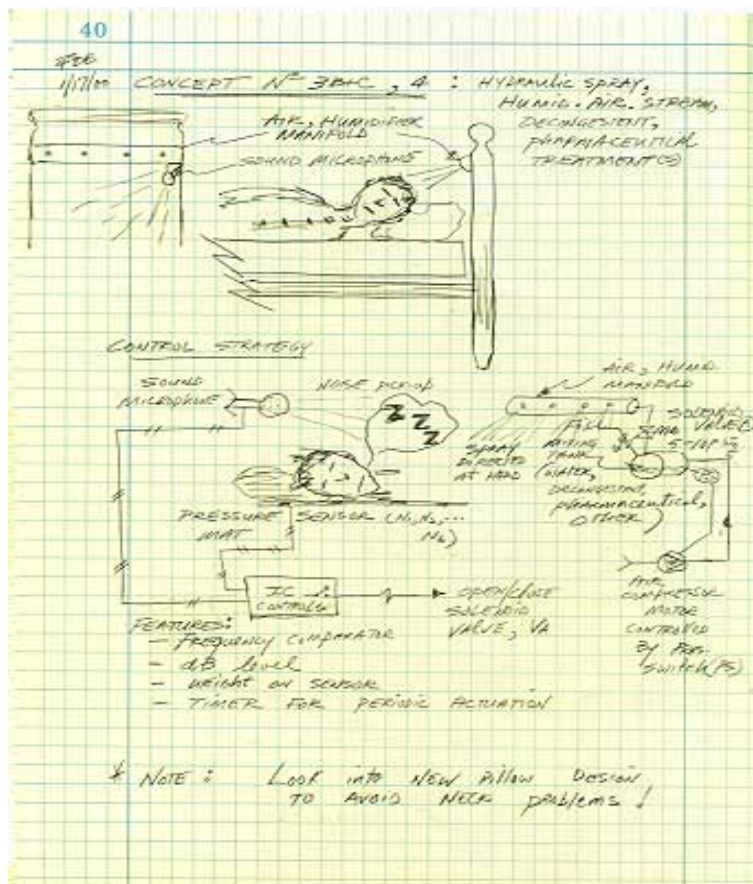 40
1/17/00 CONCEPT Nº 3B+C, 4 : HYDRAULIC SPRAY,
HUMID. AIR. STREAM,
DECONGESTENT,
PHARMACEUTICAL
TREATMENT(S)
AIR, HUMIDIFIER
MANIFOLD
SOUND MICROPHONE
CONTROL STRATEGY
SOUND
MICROPHONE
NOISE PICKUP
ZZZ
AIR, HUMID.
MANIFOLD
SOLENOID
VALVE
SPRAY
DIRECTED
AT HEAD
FILL
MIXING
TANK
(WATER,
DECONGESTANT,
PHARMACEUTICAL,
OTHER)
PRESSURE SENSOR (N1, N2, ...
MAT
IC
CONTROLS
OPEN/CLOSE
SOLENOID
VALVE, VA
AIR
COMPRESSOR
MOTOR
CONTROLLED
BY PRES.
SWITCH (PS)
FEATURES:
- FREQUENCY COMPARATOR
- dB level
- WEIGHT ON SENSOR
- TIMER FOR PERIODIC ACTUATION
* NOTE : LOOK into NEW Pillow DESIGN
TO AVOID NECK problems !